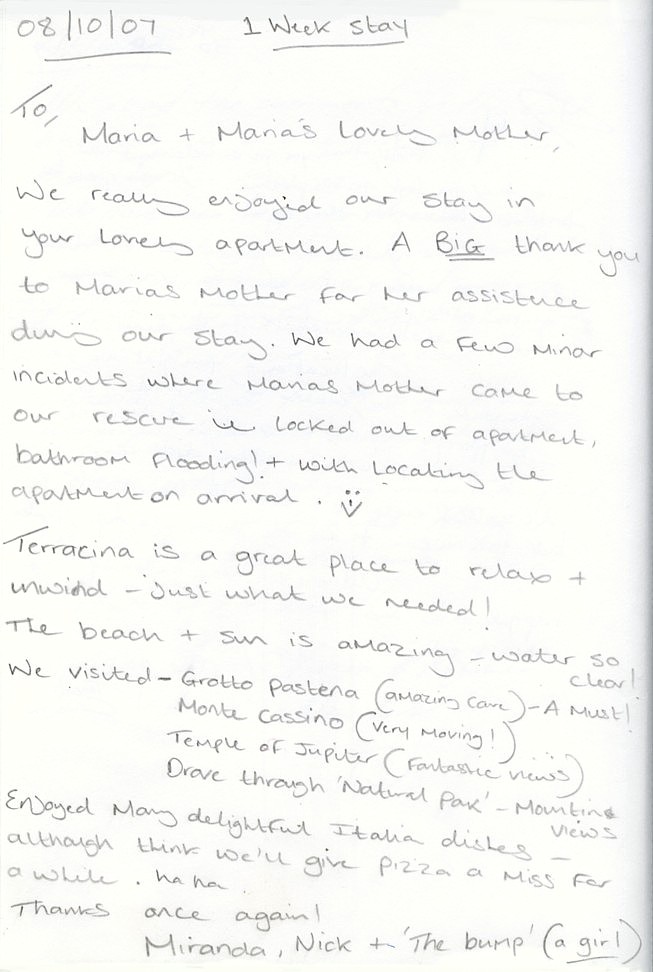 08/10/07 1 Week stay
To,
Maria + Maria's Lovely Mother,
We really enjoyed our stay in
your Lovely apartment. A BIG thank you
to Marias Mother for her assistence
during our stay. We had a few minor
incidents where Marias Mother came to
our rescue ie Locked out of apartment,
bathroom flooding! + with Locating the
apartment on arrival. :)
Terracina is a great place to relax +
unwind - just what we needed!
The beach + sun is amazing - water so
clear!
We visited - Grotto Pastena (amazing cave) - A Must!
Monte Cassino (very moving!)
Temple of Jupiter (fantastic views)
Drove through 'Natural Park' - Mountine
views
Enjoyed Many delightful Italia dishes -
although think we'll give pizza a miss for
a while. ha ha.
Thanks once again!
Miranda, Nick + 'The bump' (a girl)